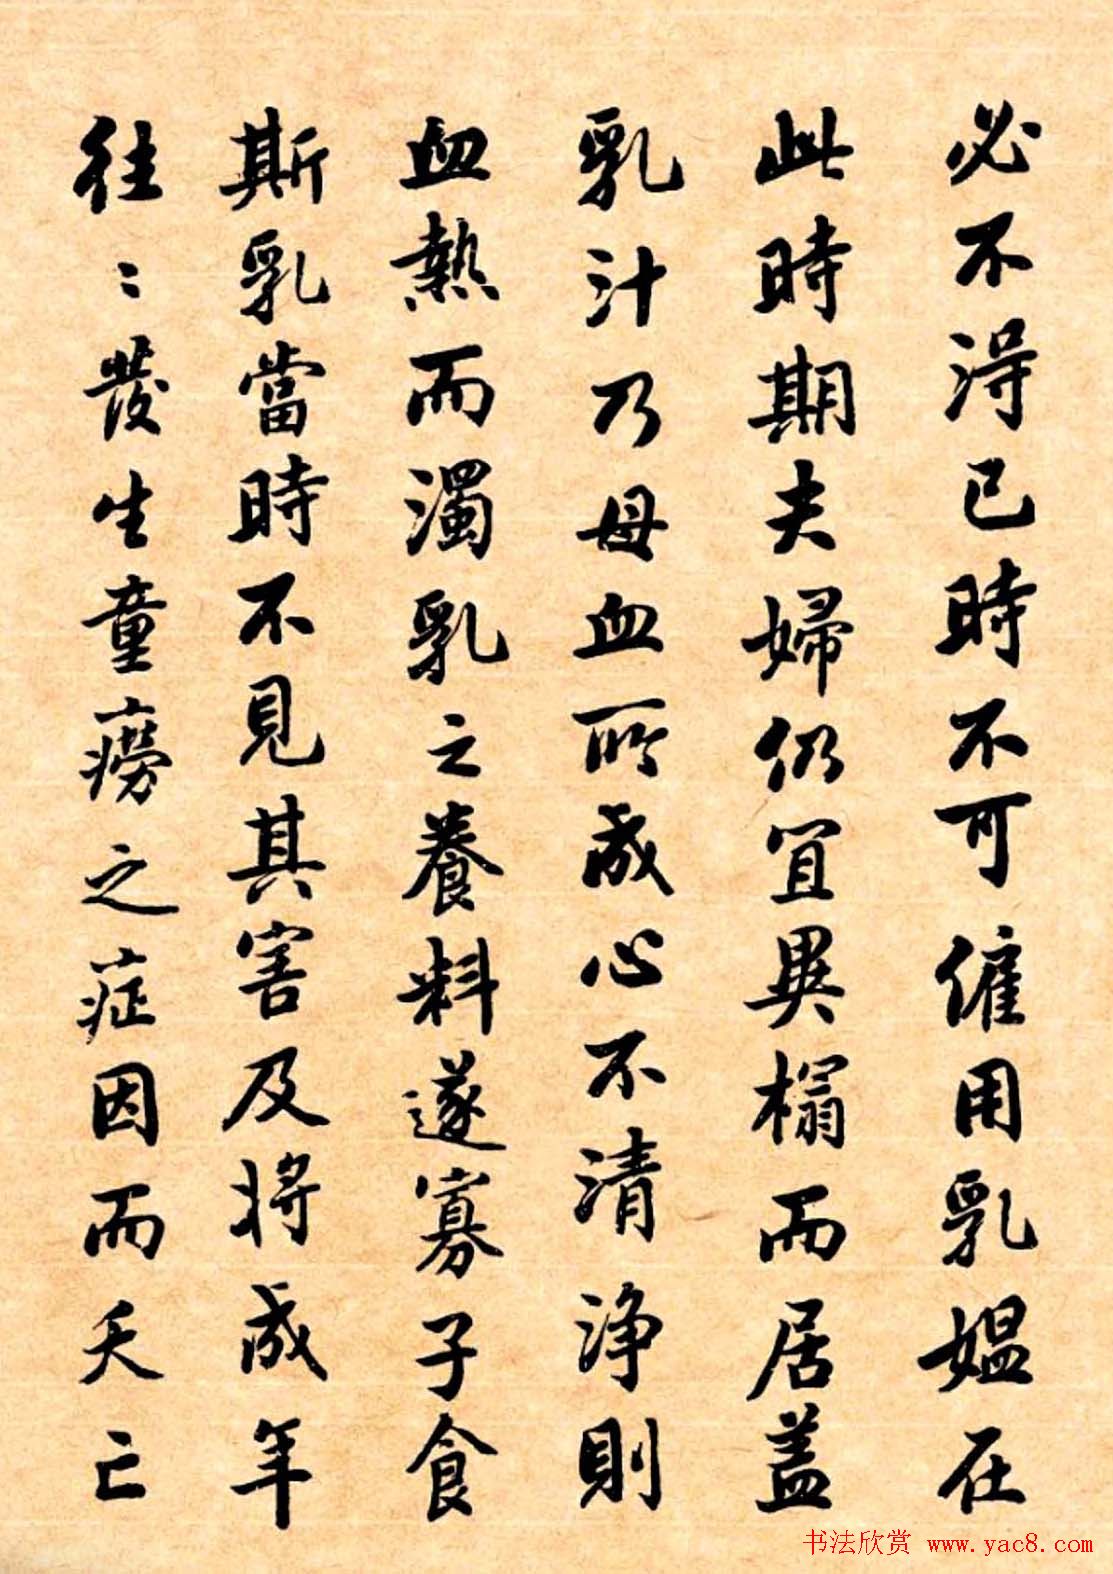 必不得已時不可僱用乳媪在
此時期夫婦仍宜異榻而居蓋
乳汁乃母血所成心不清淨則
血熱而濁乳之養料遂寡子食
斯乳當時不見其害及將成年
往〻發生童癆之症因而夭亡
书法欣赏 www.yac8.com